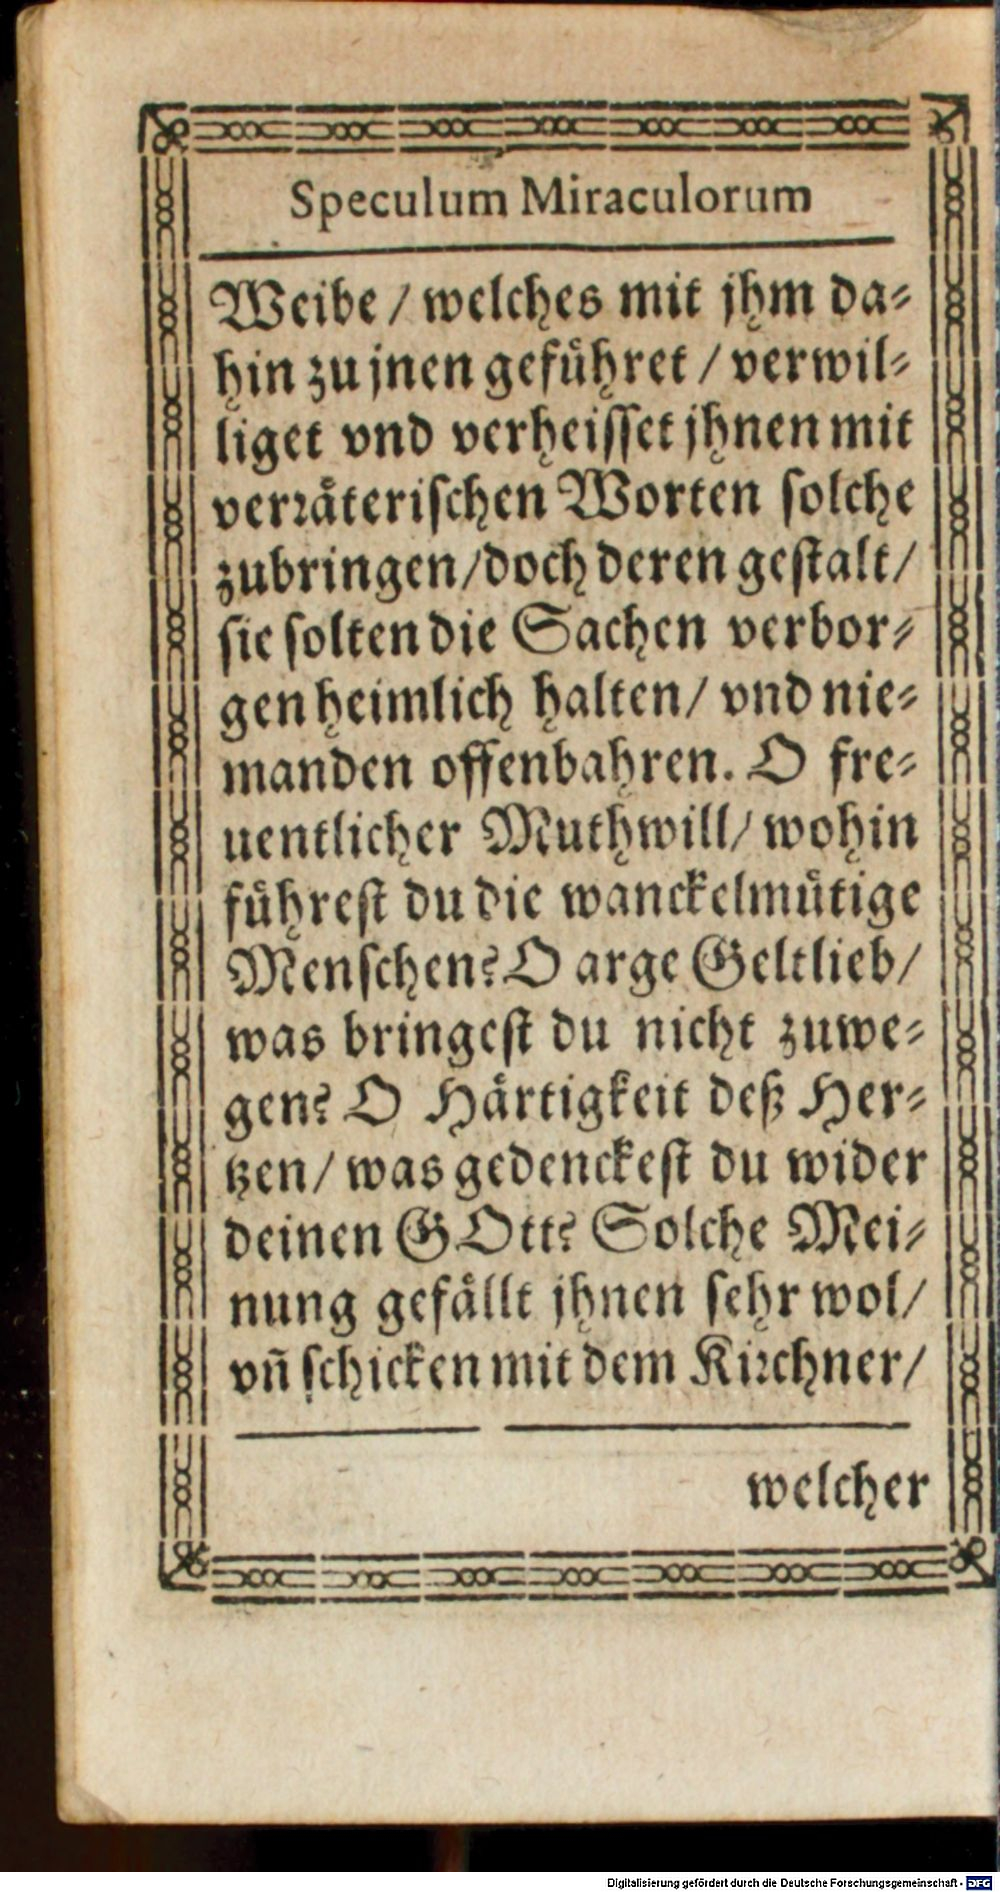 Speculum Miraculorum
Weibe / welches mit jhm da-
hin zu jnen gefuͤhret / verwil-
liget vnd verheisset jhnen mit
verꝛaͤterischen Worten solche
zubringen / doch deren gestalt /
sie solten die Sachen verbor-
gen heimlich halten / vnd nie-
manden offenbahren. O fre-
uentlicher Muthwill / wohin
fuͤhrest du die wanckelmuͤtige
Menschen? O arge Geltlieb /
was bringest du nicht zuwe-
gen? O Haͤrtigkeit deß Her-
tzen / was gedenckest du wider
deinen GOtt? Solche Mei-
nung gefaͤllt jhnen sehr wol /
vn̄ schicken mit dem Kiꝛchner /
welcher
Digitalisierung gefördert durch die Deutsche Forschungsgemeinschaft - DFG